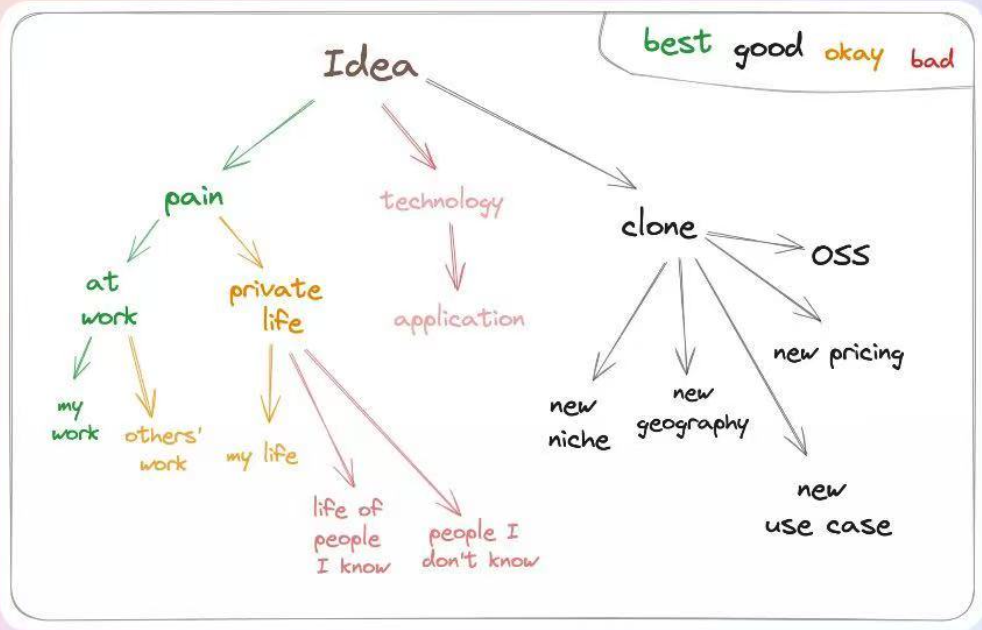 best good okay bad
Idea
pain
technology
clone
OSS
at
work
private
life
application
new pricing
my
work
others'
work
my life
new
niche
new
geography
life of
people
I know
people I
don't know
new
use case